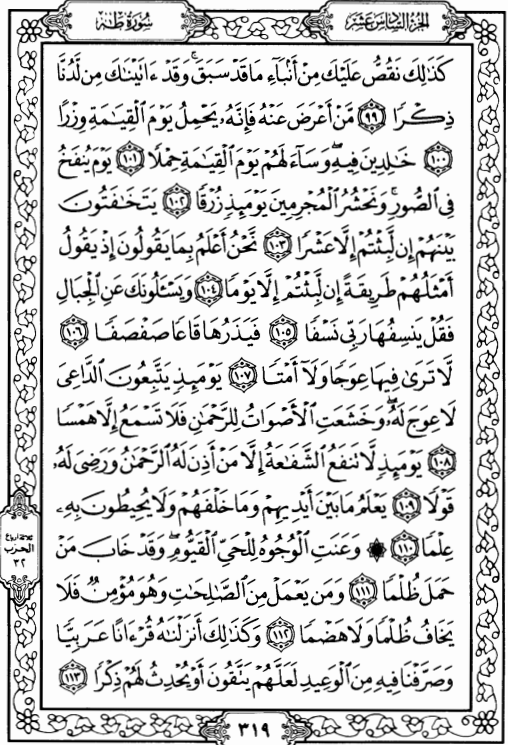 الجزء السادس عشر
سورة طه
كَذَٰلِكَ نَقُصُّ عَلَيْكَ مِنْ أَنۢبَآءِ مَا قَدْ سَبَقَۚ وَقَدْ ءَاتَيْنَٰكَ مِن لَّدُنَّا
ذِكْرًا ٩٩ مَّنْ أَعْرَضَ عَنْهُ فَإِنَّهُۥ يَحْمِلُ يَوْمَ ٱلْقِيَٰمَةِ وِزْرًا
١٠٠ خَٰلِدِينَ فِيهِۖ وَسَآءَ لَهُمْ يَوْمَ ٱلْقِيَٰمَةِ حِمْلًا ١٠١ يَوْمَ يُنفَخُ
فِى ٱلصُّورِۚ وَنَحْشُرُ ٱلْمُجْرِمِينَ يَوْمَئِذٍ زُرْقًا ١٠٢ يَتَخَٰفَتُونَ
بَيْنَهُمْ إِن لَّبِثْتُمْ إِلَّا عَشْرًا ١٠٣ نَّحْنُ أَعْلَمُ بِمَا يَقُولُونَ إِذْ يَقُولُ
أَمْثَلُهُمْ طَرِيقَةً إِن لَّبِثْتُمْ إِلَّا يَوْمًا ١٠٤ وَيَسْـَٔلُونَكَ عَنِ ٱلْجِبَالِ
فَقُلْ يَنسِفُهَا رَبِّى نَسْفًا ١٠٥ فَيَذَرُهَا قَاعًا صَفْصَفًا ١٠٦
لَّا تَرَىٰ فِيهَا عِوَجًا وَلَآ أَمْتًا ١٠٧ يَوْمَئِذٍ يَتَّبِعُونَ ٱلدَّاعِىَ
لَا عِوَجَ لَهُۥۖ وَخَشَعَتِ ٱلْأَصْوَاتُ لِلرَّحْمَٰنِ فَلَا تَسْمَعُ إِلَّا هَمْسًا
١٠٨ يَوْمَئِذٍ لَّا تَنفَعُ ٱلشَّفَٰعَةُ إِلَّا مَنْ أَذِنَ لَهُ ٱلرَّحْمَٰنُ وَرَضِىَ لَهُۥ
قَوْلًا ١٠٩ يَعْلَمُ مَا بَيْنَ أَيْدِيهِمْ وَمَا خَلْفَهُمْ وَلَا يُحِيطُونَ بِهِۦ
عِلْمًا ١١٠ ۞ وَعَنَتِ ٱلْوُجُوهُ لِلْحَىِّ ٱلْقَيُّومِۖ وَقَدْ خَابَ مَنْ
حَمَلَ ظُلْمًا ١١١ وَمَن يَعْمَلْ مِنَ ٱلصَّٰلِحَٰتِ وَهُوَ مُؤْمِنٌ فَلَا
يَخَافُ ظُلْمًا وَلَا هَضْمًا ١١٢ وَكَذَٰلِكَ أَنزَلْنَٰهُ قُرْءَانًا عَرَبِيًّا
وَصَرَّفْنَا فِيهِ مِنَ ٱلْوَعِيدِ لَعَلَّهُمْ يَتَّقُونَ أَوْ يُحْدِثُ لَهُمْ ذِكْرًا ١١٣
ثلاثة ارباع
الحزب
٣٢
٣١٩